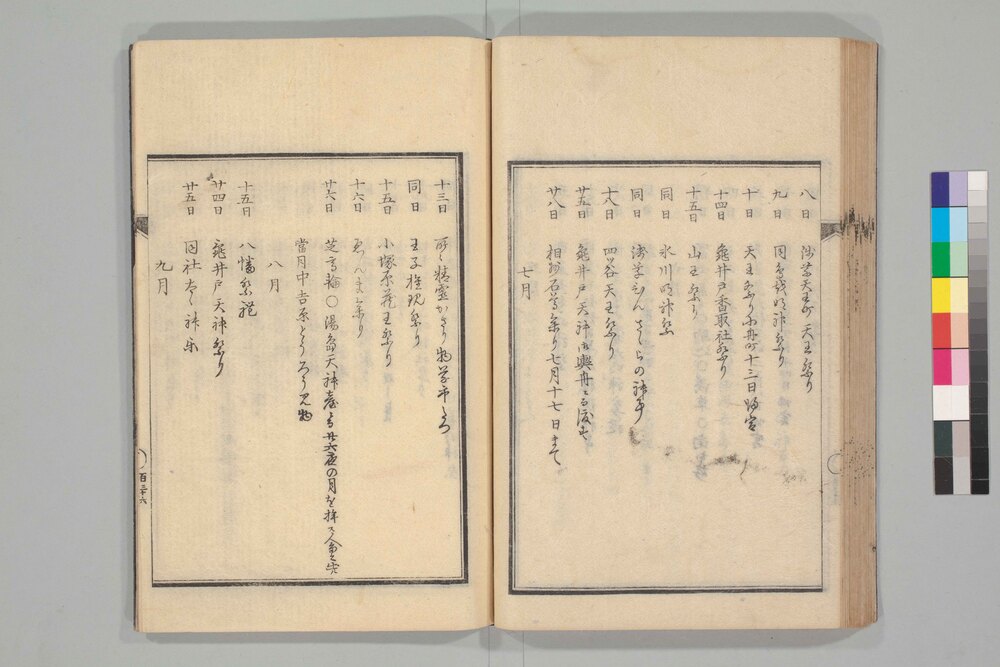 八日 浅草天王町天王祭り
九日 同鳥越明神祭り
十日 天王祭り小舟町十三日帰宮
十四日 亀井戸香取社祭り
十五日 山王祭り
同日 氷川明神祭
同日 浅草さんさゝらの神事
十八日 四ツ谷天王祭り
廿五日 亀井戸天神御輿舟にて渡す
廿八日 相州石尊参り七月十七日まて
七月
十三日 所々精霊かさり物草市たつ
同日 王子権現祭り
十五日 小塚原天王祭り
十六日 ゑんま参り
廿六日 芝高輪〇湯島天神台にて廿六夜の月を拝す人
當月中吉原とうろう見物
八月
十五日 八幡祭禮
廿四日 亀井戸天神祭り
廿五日 同社神楽
九月
百三十六